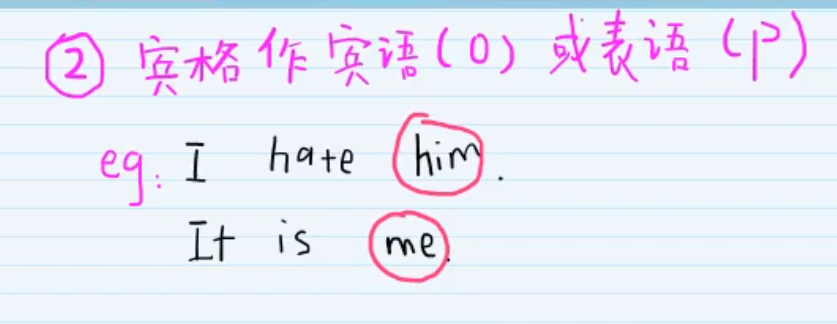 ② 宾格作宾语(O)或表语(P)
eg: I hate him.
It is me.